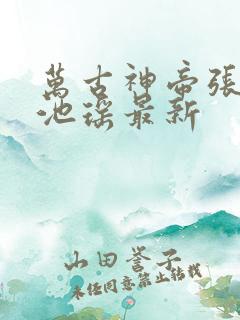 萬古神帝張
池瑤最新
山田誉子
未经同意禁止转载